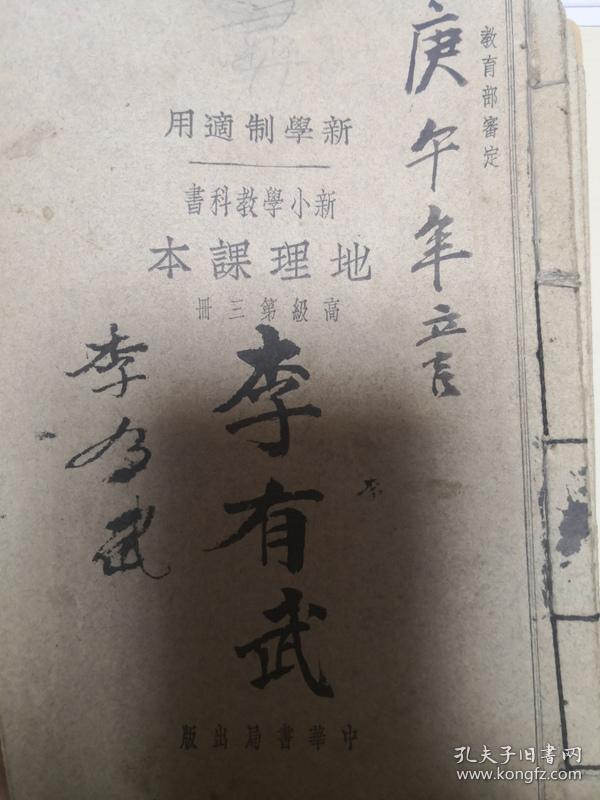 教育部審定
庚午年立言
新學制適用
新小學教科書
地理課本
高級第三冊
李有武
李
李有武
中華書局出版
孔夫子旧书网
www.kongfz.com